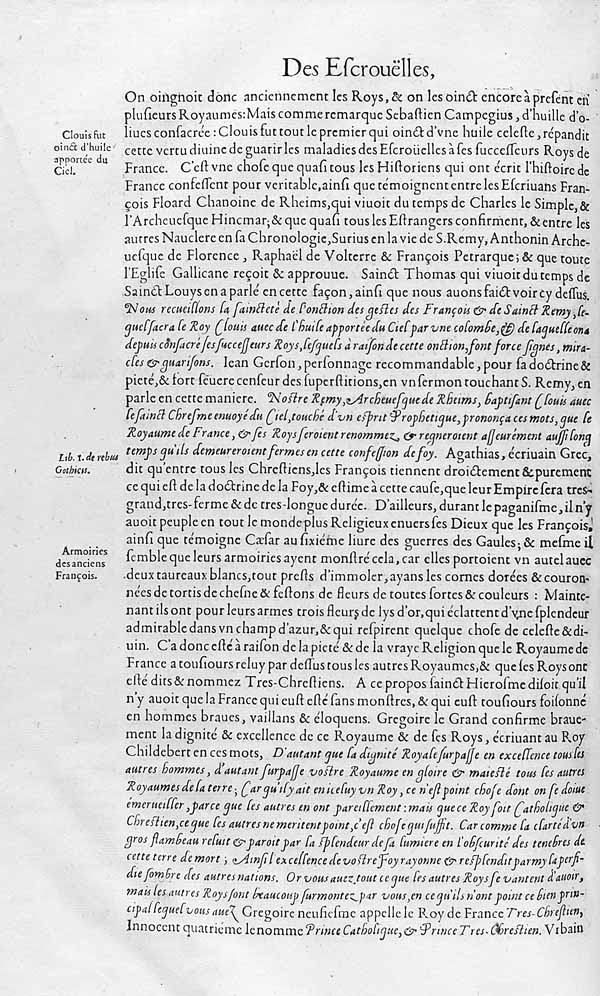 Des Eſcrouëlles,
On oingnoit donc anciennement les Roys, & on les oinct encore à preſent en
pluſieurs Royaumes: Mais comme remarque Sebaſtien Campegius, d'huille d'o-
Clouis fut
oinct d'huile
apportée du
Ciel.
liues conſacrée: Clouis fut tout le premier qui oinct d'vne huile celeſte, répandit
cette vertu diuine de guarir les maladies des Eſcroüelles à ſes ſucceſſeurs Roys de
France. C'eſt vne choſe que quaſi tous les Hiſtoriens qui ont écrit l'hiſtoire de
France confeſſent pour veritable, ainſi que témoignent entre les Eſcriuans Fran-
çois Floard Chanoine de Rheims, qui viuoit du temps de Charles le Simple, &
l'Archeueſque Hincmar; & que quaſi tous les Eſtrangers confirment, & entre les
autres Nauclere en ſa Chronologie, Surius en la vie de S. Remy, Anthonin Arche-
ueſque de Florence, Raphaël de Volterre & François Petrarque; & que toute
l'Egliſe Gallicane reçoit & approuue. Sainct Thomas qui viuoit du temps de
Sainct Louys en a parlé en cette façon, ainſi que nous auons faict voir cy deſſus.
Nous recueillons la ſaincteté de l'onction des geſtes des François & de Sainct Remy, le-
quel ſacra le Roy Clouis auec de l'huile apportée du Ciel par vne colombe, & de laquelle on a
depuis conſacré ſes ſucceſſeurs Roys, leſquels à raiſon de cette onction, font force ſignes, mira-
cles & guariſons. Iean Gerſon, perſonnage recommandable, pour ſa doctrine &
pieté, & fort ſeuere cenſeur des ſuperſtitions, en vn ſermon touchant S. Remy, en
parle en cette maniere. Noſtre Remy, Archeueſque de Rheims, baptiſant Clouis auec
le ſainct Chreſme enuoyé du Ciel, touché d'vn eſprit Prophetique, prononça ces mots, que le
Royaume de France, & ſes Roys ſeroient renommez, & regneroient aſſeurément auſſi long
Lib. 1. de rebus
Gothicis.
temps qu'ils demeureroient fermes en cette confeſſion de foy. Agathias, écriuain Grec,
dit qu'entre tous les Chreſtiens, les François tiennent droictement & purement
ce qui eſt de la doctrine de la Foy, & eſtime à cette cauſe, que leur Empire ſera tres-
grand, tres-ferme & de tres-longue durée. D'ailleurs, durant le paganiſme, il n'y
auoit peuple en tout le monde plus Religieux enuers ſes Dieux que les François,
ainſi que témoigne Cæſar au ſixiéme liure des guerres des Gaules; & meſme il
Armoiries
des anciens
François.
ſemble que leurs armoiries ayent monſtré cela, car elles portoient vn autel auec
deux taureaux blancs, tout preſts d'immoler, ayans les cornes dorées & couron-
nées de tortis de cheſne & feſtons de fleurs de toutes ſortes & couleurs : Mainte-
nant ils ont pour leurs armes trois fleurs de lys d'or, qui éclattent d'vne ſplendeur
admirable dans vn champ d'azur, & qui reſpirent quelque choſe de celeſte & di-
uin. C'a donc eſté à raiſon de la pieté & de la vraye Religion que le Royaume de
France a touſiours reluy par deſſus tous les autres Royaumes, & que les Roys ont
eſté dits & nommez Tres-Chreſtiens. A ce propos ſainct Hieroſme diſoit qu'il
n'y auoit que la France qui euſt eſté ſans monſtres, & qui euſt touſiours foiſonné
en hommes braues, vaillans & éloquens. Gregoire le Grand confirme braue-
ment la dignité & excellence de ce Royaume & de ſes Roys, écriuant au Roy
Childebert en ces mots, D'autant que la dignité Royale ſurpaſſe en excellence tous les
autres hommes, d'autant ſurpaſſe voſtre Royaume en gloire & maieſté tous les autres
Royaumes de la terre; Car qu'il y ait en iceluy vn Roy, ce n'eſt point choſe dont on ſe doiue
émerueiller, parce que les autres en ont pareillement: mais que ce Roy ſoit Catholique &
Chreſtien, ce que les autres ne meritent point, c'eſt choſe qui ſuffit. Car comme la clarté d'vn
gros flambeau reluit & paroit par la ſplendeur de ſa lumiere en l'obſcurité des tenebres de
cette terre de mort; Ainſi l'excellence de voſtre Foy rayonne & reſplendit parmy la perfi-
die ſombre des autres nations. Or vous auez tout ce que les autres Roys ſe vantent d'auoir,
mais les autres Roys ſont beaucoup ſurmontez par vous, en ce qu'ils n'ont point ce bien prin-
cipal lequel vous auez Gregoire neufieſme appelle le Roy de France Tres-Chreſtien,
Innocent quatriéme le nomme Prince Catholique, & Prince Tres-Chreſtien. Vrbain